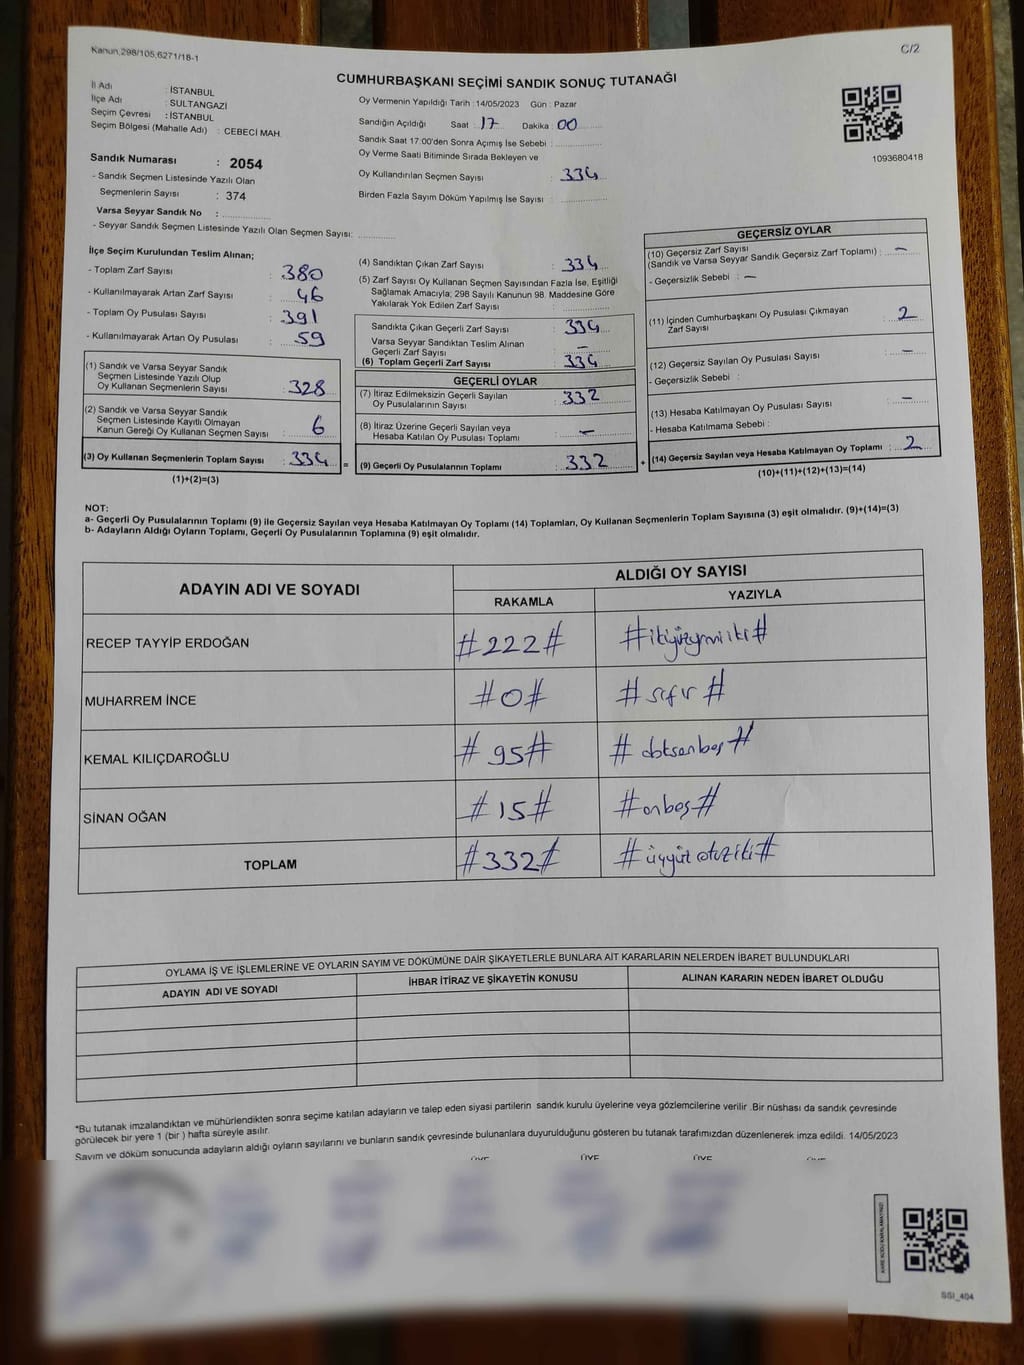 Kanun,298/105,6271/18-1
C/2
CUMHURBAŞKANI SEÇİMİ SANDIK SONUÇ TUTANAĞI
İl Adı : İSTANBUL
İlçe Adı : SULTANGAZİ
Seçim Çevresi : İSTANBUL
Seçim Bölgesi (Mahalle Adı) : CEBECİ MAH.
Sandık Numarası : 2054
- Sandık Seçmen Listesinde Yazılı Olan
Seçmenlerin Sayısı : 374
Varsa Seyyar Sandık No :
- Seyyar Sandık Seçmen Listesinde Yazılı Olan Seçmen Sayısı:
Oy Vermenin Yapıldığı Tarih : 14/05/2023 Gün : Pazar
Sandığın Açıldığı Saat : 17 Dakika : 00
Sandık Saat 17:00'den Sonra Açımış İse Sebebi :
Oy Verme Saati Bitiminde Sırada Bekleyen ve
Oy Kullandırılan Seçmen Sayısı : 334
Birden Fazla Sayım Döküm Yapılmış İse Sayısı :
1093680418
İlçe Seçim Kurulundan Teslim Alınan;
- Toplam Zarf Sayısı : 380
- Kullanılmayarak Artan Zarf Sayısı : 46
- Toplam Oy Pusulası Sayısı : 391
- Kullanılmayarak Artan Oy Pusulası : 59
(1) Sandık ve Varsa Seyyar Sandık
Seçmen Listesinde Yazılı Olup
Oy Kullanan Seçmenlerin Sayısı : 328
(2) Sandık ve Varsa Seyyar Sandık
Seçmen Listesinde Kayıtlı Olmayan
Kanun Gereği Oy Kullanan Seçmen Sayısı : 6
(3) Oy Kullanan Seçmenlerin Toplam Sayısı : 334 =
(1)+(2)=(3)
(4) Sandıktan Çıkan Zarf Sayısı : 334
(5) Zarf Sayısı Oy Kullanan Seçmen Sayısından Fazla İse, Eşitliği
Sağlamak Amacıyla; 298 Sayılı Kanunun 98. Maddesine Göre
Yakılarak Yok Edilen Zarf Sayısı :
Sandıkta Çıkan Geçerli Zarf Sayısı : 334
Varsa Seyyar Sandıktan Teslim Alınan
Geçerli Zarf Sayısı : -
(6) Toplam Geçerli Zarf Sayısı : 334
GEÇERLİ OYLAR
(7) İtiraz Edilmeksizin Geçerli Sayılan
Oy Pusulalarının Sayısı : 332
(8) İtiraz Üzerine Geçerli Sayılan veya
Hesaba Katılan Oy Pusulası Toplamı : -
(9) Geçerli Oy Pusulalarının Toplamı : 332 +
GEÇERSİZ OYLAR
(10) Geçersiz Zarf Sayısı
(Sandık ve Varsa Seyyar Sandık Geçersiz Zarf Toplamı) : -
- Geçersizlik Sebebi : -
(11) İçinden Cumhurbaşkanı Oy Pusulası Çıkmayan
Zarf Sayısı : 2
(12) Geçersiz Sayılan Oy Pusulası Sayısı : -
- Geçersizlik Sebebi :
(13) Hesaba Katılmayan Oy Pusulası Sayısı : -
- Hesaba Katılmama Sebebi :
(14) Geçersiz Sayılan veya Hesaba Katılmayan Oy Toplamı : 2
(10)+(11)+(12)+(13)=(14)
NOT:
a- Geçerli Oy Pusulalarının Toplamı (9) ile Geçersiz Sayılan veya Hesaba Katılmayan Oy Toplamı (14) Toplamları, Oy Kullanan Seçmenlerin Toplam Sayısına (3) eşit olmalıdır. (9)+(14)=(3)
b- Adayların Aldığı Oyların Toplamı, Geçerli Oy Pusulalarının Toplamına (9) eşit olmalıdır.
ADAYIN ADI VE SOYADI
ALDIĞI OY SAYISI
RAKAMLA YAZIYLA
RECEP TAYYİP ERDOĞAN #222# #ikiyüzyirmiiki#
MUHARREM İNCE #0# #sıfır#
KEMAL KILIÇDAROĞLU #95# #doksanbeş#
SİNAN OĞAN #15# #onbeş#
TOPLAM #332# #üçyüzotuziki#
OYLAMA İŞ VE İŞLEMLERİNE VE OYLARIN SAYIM VE DÖKÜMÜNE DAİR ŞİKAYETLERLE BUNLARA AİT KARARLARIN NELERDEN İBARET BULUNDUKLARI
ADAYIN ADI VE SOYADI İHBAR İTİRAZ VE ŞİKAYETİN KONUSU ALINAN KARARIN NEDEN İBARET OLDUĞU
*Bu tutanak imzalandıktan ve mühürlendikten sonra seçime katılan adayların ve talep eden siyasi partilerin sandık kurulu üyelerine veya gözlemcilerine verilir .Bir nüshası da sandık çevresinde
görülecek bir yere 1 (bir ) hafta süreyle asılır.
Sayım ve döküm sonucunda adayların aldığı oyların sayılarını ve bunların sandık çevresinde bulunanlara duyurulduğunu gösteren bu tutanak tarafımızdan düzenlenerek imza edildi. 14/05/2023
ÜYE ÜYE ÜYE
SSI_404